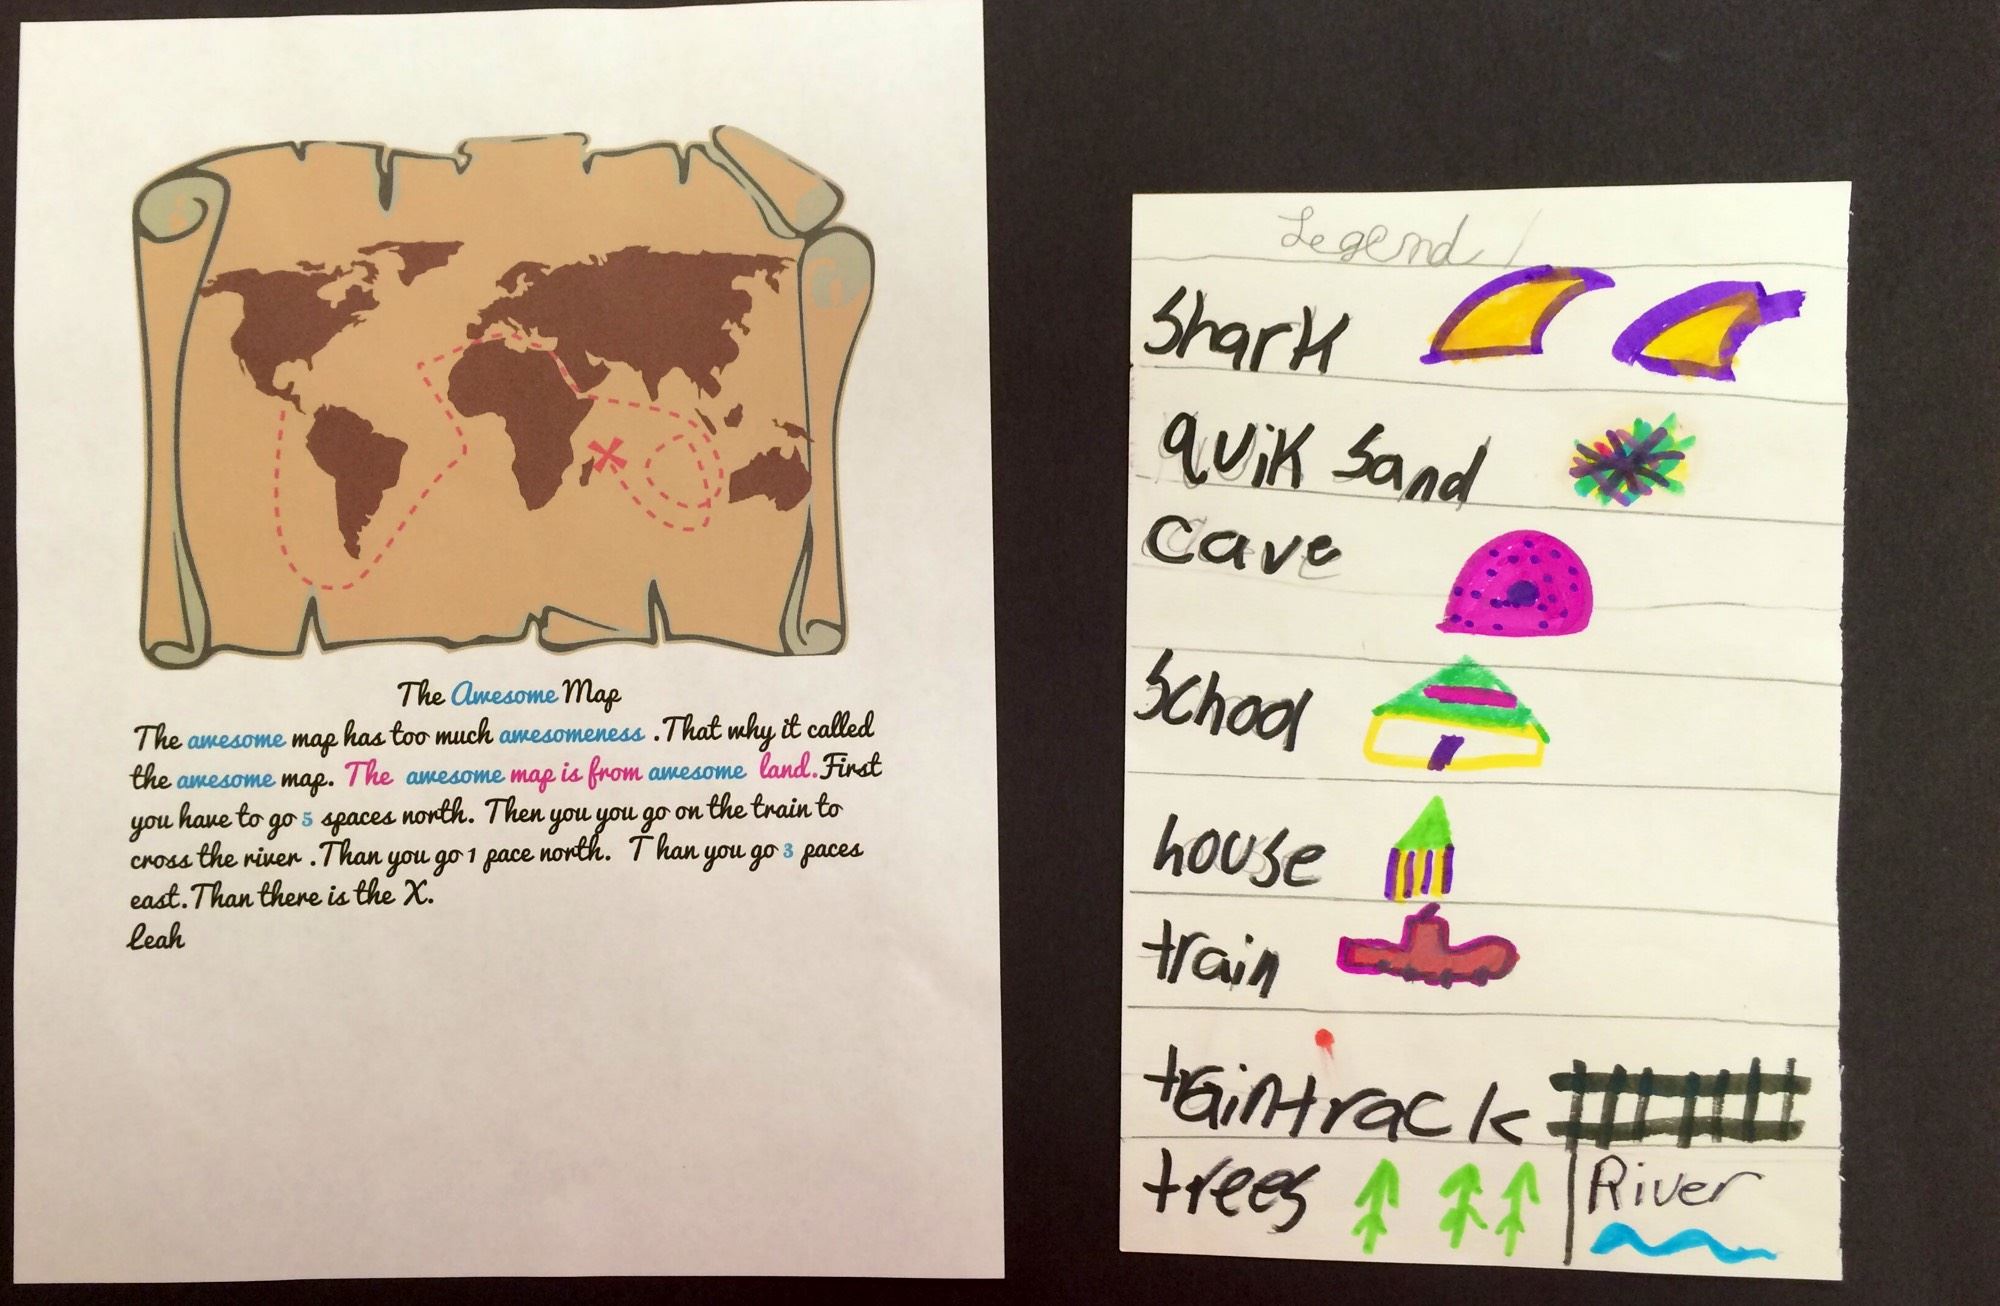 The Awesome Map
The awesome map has too much awesomeness . That why it called
the awesome map. The awesome map is from awesome land. First
you have to go 5 spaces north. Then you you go on the train to
cross the river . Than you go 1 pace north. T han you go 3 paces
east. Than there is the X.
Leah
Legend
Shark
quik sand
cave
School
house
train
traintrack
trees
River